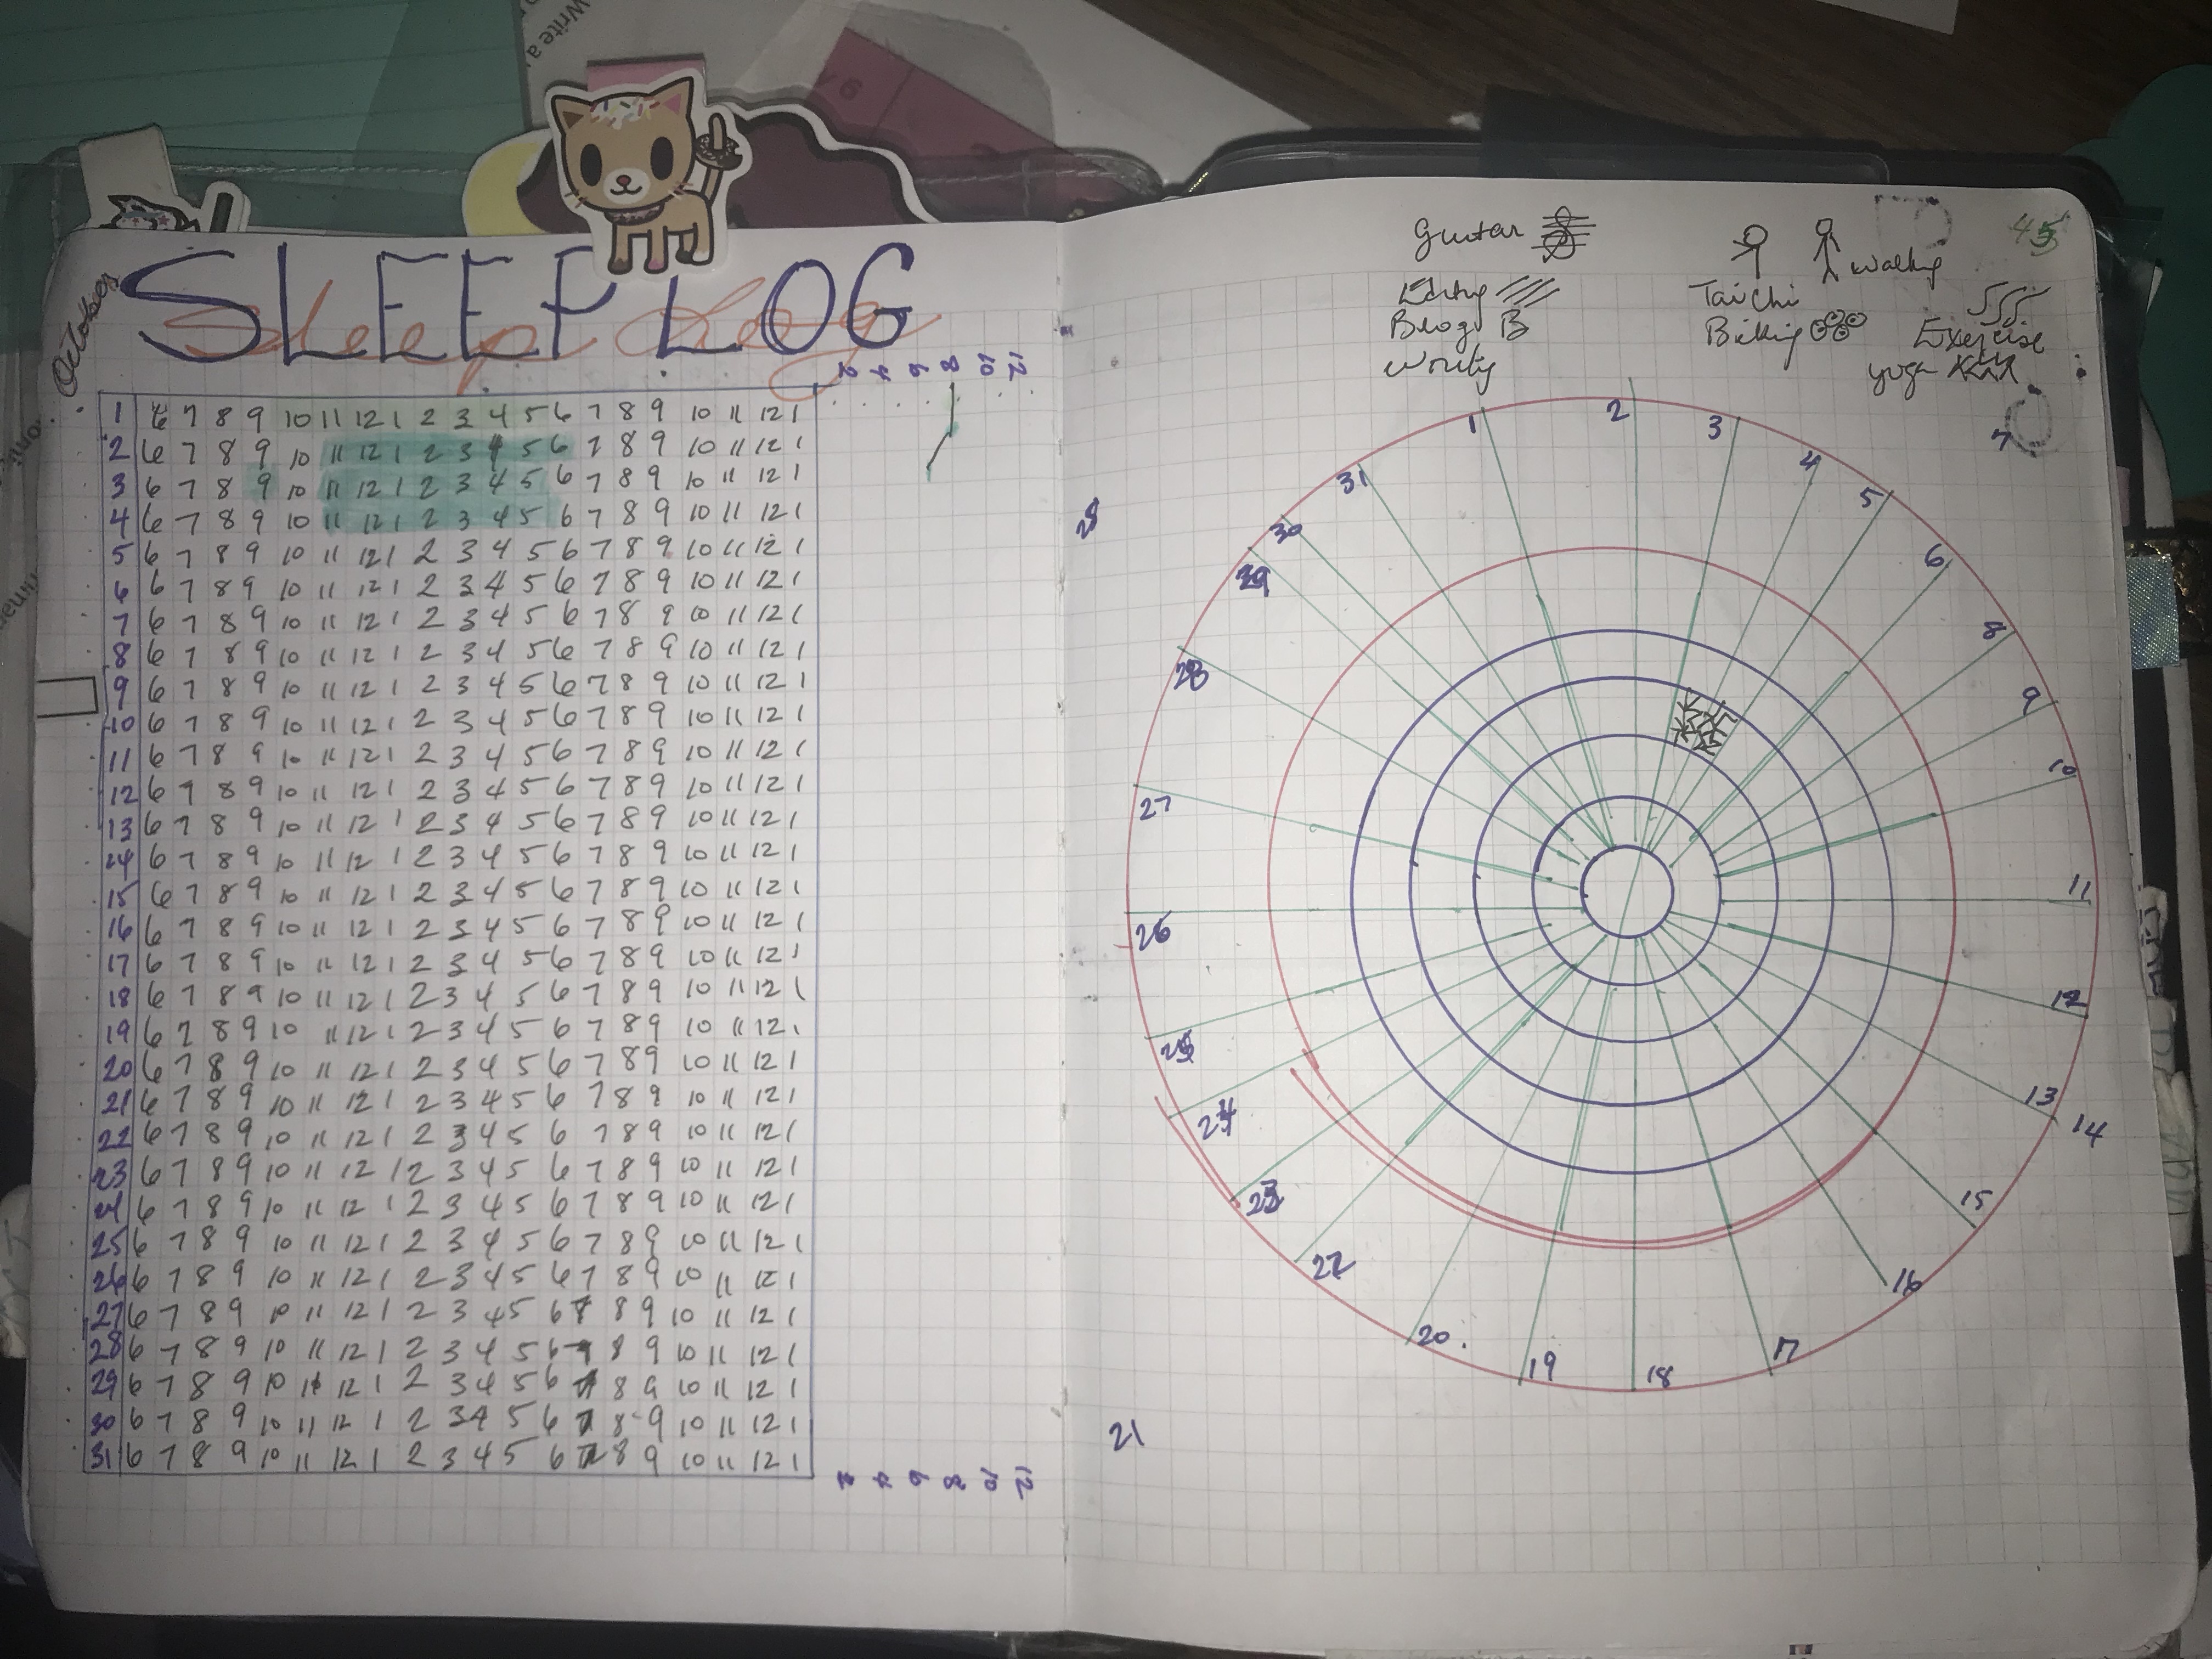 Write a
October
SLEEP LOG
Sleep Log
2 4 6 8 10 12
1 6 7 8 9 10 11 12 1 2 3 4 5 6 7 8 9 10 11 12 1
2 6 7 8 9 10 11 12 1 2 3 4 5 6 7 8 9 10 11 12 1
3 6 7 8 9 10 11 12 1 2 3 4 5 6 7 8 9 10 11 12 1
4 6 7 8 9 10 11 12 1 2 3 4 5 6 7 8 9 10 11 12 1
5 6 7 8 9 10 11 12 1 2 3 4 5 6 7 8 9 10 11 12 1
6 6 7 8 9 10 11 12 1 2 3 4 5 6 7 8 9 10 11 12 1
7 6 7 8 9 10 11 12 1 2 3 4 5 6 7 8 9 10 11 12 1
8 6 7 8 9 10 11 12 1 2 3 4 5 6 7 8 9 10 11 12 1
9 6 7 8 9 10 11 12 1 2 3 4 5 6 7 8 9 10 11 12 1
10 6 7 8 9 10 11 12 1 2 3 4 5 6 7 8 9 10 11 12 1
11 6 7 8 9 10 11 12 1 2 3 4 5 6 7 8 9 10 11 12 1
12 6 7 8 9 10 11 12 1 2 3 4 5 6 7 8 9 10 11 12 1
13 6 7 8 9 10 11 12 1 2 3 4 5 6 7 8 9 10 11 12 1
24 6 7 8 9 10 11 12 1 2 3 4 5 6 7 8 9 10 11 12 1
15 6 7 8 9 10 11 12 1 2 3 4 5 6 7 8 9 10 11 12 1
16 6 7 8 9 10 11 12 1 2 3 4 5 6 7 8 9 10 11 12 1
17 6 7 8 9 10 11 12 1 2 3 4 5 6 7 8 9 10 11 12 1
18 6 7 8 9 10 11 12 1 2 3 4 5 6 7 8 9 10 11 12 1
19 6 7 8 9 10 11 12 1 2 3 4 5 6 7 8 9 10 11 12 1
20 6 7 8 9 10 11 12 1 2 3 4 5 6 7 8 9 10 11 12 1
21 6 7 8 9 10 11 12 1 2 3 4 5 6 7 8 9 10 11 12 1
22 6 7 8 9 10 11 12 1 2 3 4 5 6 7 8 9 10 11 12 1
23 6 7 8 9 10 11 12 1 2 3 4 5 6 7 8 9 10 11 12 1
24 6 7 8 9 10 11 12 1 2 3 4 5 6 7 8 9 10 11 12 1
25 6 7 8 9 10 11 12 1 2 3 4 5 6 7 8 9 10 11 12 1
26 6 7 8 9 10 11 12 1 2 3 4 5 6 7 8 9 10 11 12 1
27 6 7 8 9 10 11 12 1 2 3 4 5 6 7 8 9 10 11 12 1
28 6 7 8 9 10 11 12 1 2 3 4 5 6 7 8 9 10 11 12 1
29 6 7 8 9 10 11 12 1 2 3 4 5 6 7 8 9 10 11 12 1
30 6 7 8 9 10 11 12 1 2 3 4 5 6 7 8 9 10 11 12 1
31 6 7 8 9 10 11 12 1 2 3 4 5 6 7 8 9 10 11 12 1
2 4 6 8 10 12
45
Guitar
Walking
Editing
Tai Chi
Blog B
Biking
Exercise
Writing
yoga
7
1
2
3
4
5
6
8
9
10
11
12
13
14
15
16
17
18
19
20
21
22
23
24
25
26
27
28
29
30
31